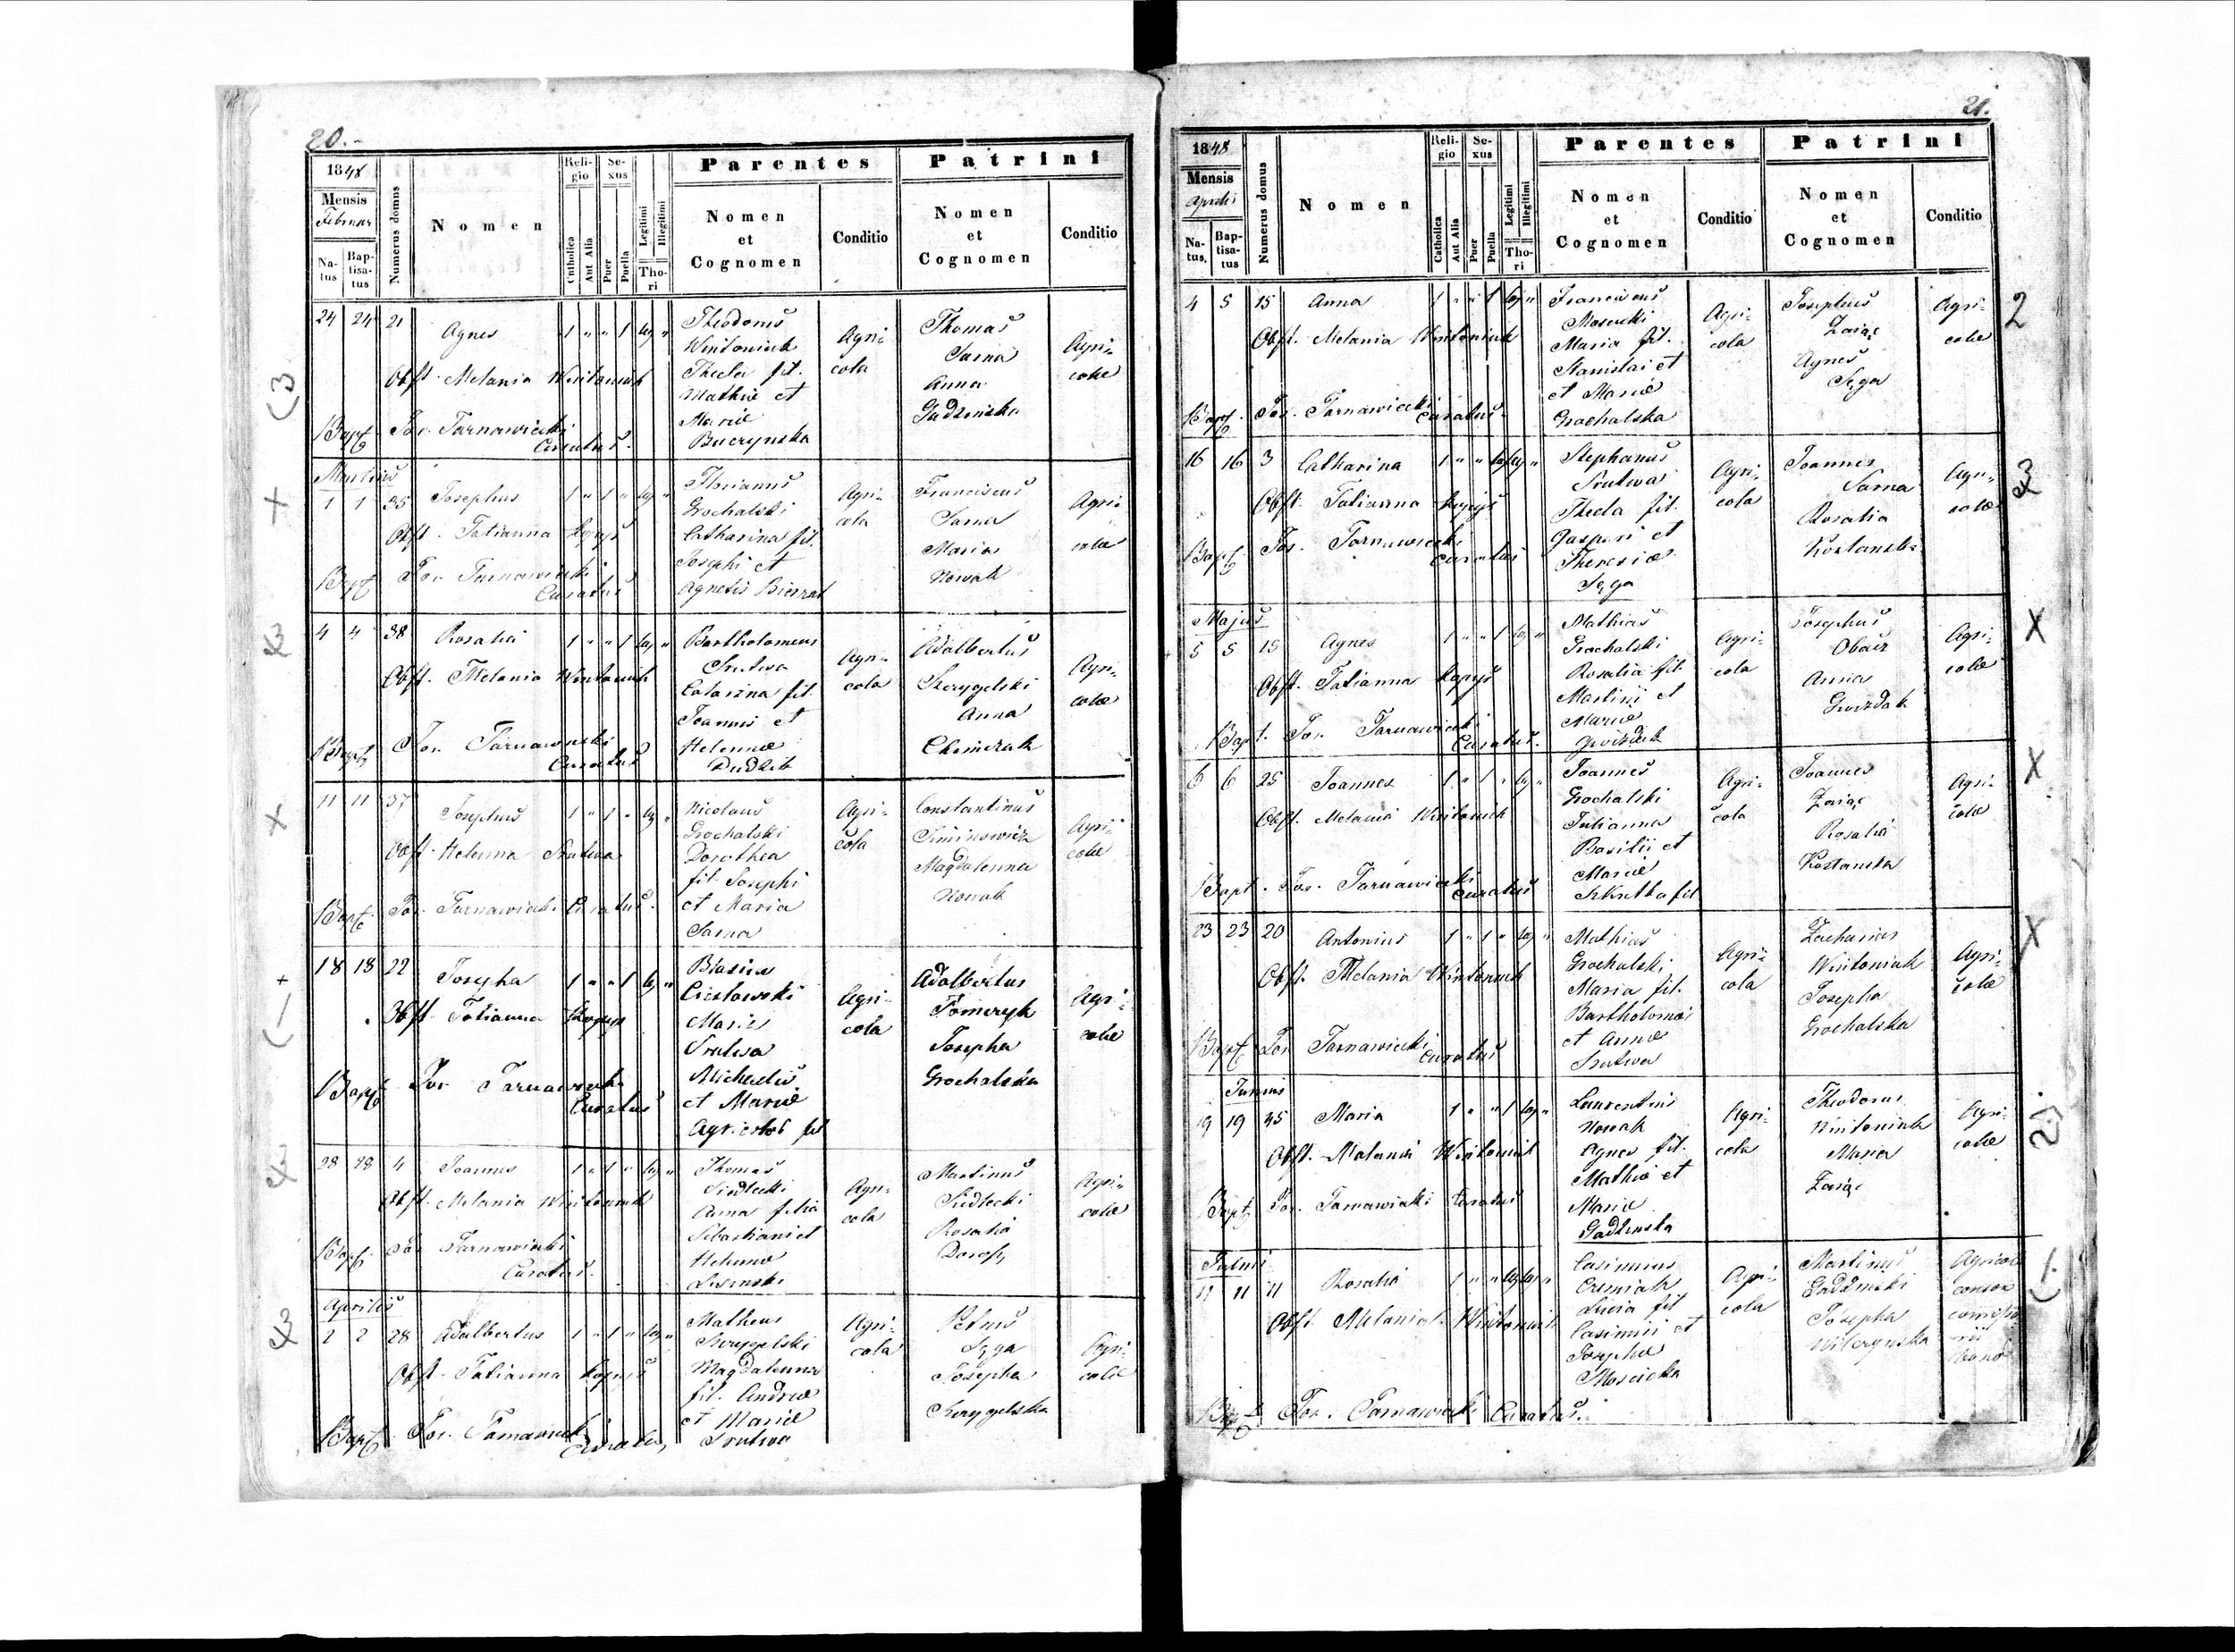 20.-
1848
Mensis
Februar
Na-
tus
Bap-
tisa-
tus
Numerus domus
Nomen
Reli-
gio
Catholica
Aut Alia
Se-
xus
Puer
Puella
Legitimi
Illegitimi
Tho-
ri
Parentes
Nomen
et
Cognomen
Conditio
Patrini
Nomen
et
Cognomen
Conditio
24 24 21 Agnes 1 " " 1 leg "
Obst. Melania Wintoniak
Bapt. Jos. Tarnawiecki
Curatus.
Theodorus
Wintoniak
Thecla fil.
Mathiae et
Mariae
Buczynska
Agri-
cola
Thomas
Sarna
Anna
Gadzinska
Agri-
colae
Martius
1 1 35 Josephus 1 " 1 " leg "
Obst. Tatianna Kopys
Bapt. Jos. Tarnawiecki
Curatus
Florianus
Grochalski
Catharina fil.
Josephi et
Agnetis Biernat
Agri-
cola
Franciscus
Sarna
Maria
Nowak
Agri-
colae
4 4 38 Rosalia 1 " " 1 leg "
Obst. Melania Wintoniak
Bapt. Jos. Tarnawiecki
Curatus
Bartholomeus
Srutwa
Catarina fil.
Joannis et
Helennae
Dudzik
Agri-
cola
Adalbertus
Skrzygelski
Anna
Agri-
colae
11 11 37 Josephus 1 " 1 " leg "
Obst. Helenna Srutwa
Bapt. Jos. Tarnawiecki Curatus.
Nicolaus
Grochalski
Dorothea
fil. Josephi
et Maria
Sarna
Agri-
cola
Constantinus
Magdalenna
Nowak
Agri-
colae
18 18 22 Josepha 1 " " 1 leg "
Obst. Tatianna Kopys
Bapt. Jos. Tarnawiecki
Curatus
Blasius
Cieslowski
Maria
Srutwa
Michaelis
et Mariae
fil
Agri-
cola
Adalbertus
Tomczyk
Josepha
Grochalska
Agri-
colae
28 28 4 Joannes 1 " 1 " leg "
Obst. Melania Wintoniak
Bapt. Jos. Tarnawiecki
Curatus.
Thomas
Siedlecki
Anna filia
Sebastiani et
Helennae
Agri-
cola
Martinus
Siedlecki
Rosalia
Agri-
colae
Aprilis
2 2 28 Adalbertus 1 " 1 " leg "
Obst. Tatianna Kopys
Bapt. Jos. Tarnawiecki
Curatus
Matheus
Skrzygelski
Magdalenna
fil. Andreae
et Mariae
Srutwa
Agri-
cola
Petrus
Sęga
Josepha
Skrzygelska
Agri-
colae
21.
1848
Mensis
Aprilis
Na-
tus.
Bap-
tisa-
tus
Numerus domus
Nomen
Reli-
gio
Catholica
Aut Alia
Se-
xus
Puer
Puella
Legitimi
Illegitimi
Tho-
ri
Parentes
Nomen
et
Cognomen
Conditio
Patrini
Nomen
et
Cognomen
Conditio
4 5 15 Anna 1 " " 1 leg "
Obst. Melania Wintoniak
Bapt. Jos. Tarnawiecki
Curatus.
Franciscus
Mosiecki
Maria fil.
Stanislai et
et Mariae
Grochalska
Agri-
cola
Josephus
Zaiąc
Agnes
Sęga
Agri-
colae
2
16 16 3 Catharina 1 " " leg "
Obst. Tatianna Kopys
Bapt. Jos. Tarnawiecki
Curatus
Stephanus
Srutwa
Thecla fil.
Gaspari et
Theresiae
Sęga
Agri-
cola
Joannes
Sarna
Rosalia
Kostanska
Agri-
colae
3
Majus
5 5 15 Agnes 1 " " 1 leg "
Obst. Tatianna Kopys
Bapt. Jos. Tarnawiecki
Curatus.
Mathias
Grochalski
Rosalia fil.
Martini et
Mariae
Gwizdak
Agri-
cola
Josephus
Anna
Gwizdak
Agri-
colae
X
6 6 25 Joannes 1 " 1 " leg "
Obst. Melania Wintoniak
Bapt. Jos. Tarnawiecki
Curatus
Joannes
Grochalski
Julianna
Basilii et
Mariae
fil
Agri-
cola
Joannes
Zaiąc
Rosalia
Kostanska
Agri-
colae
X
23 23 20 Antonius 1 " 1 " leg "
Obst. Melania Wintoniak
Bapt. Jos Tarnawiecki
Curatus
Mathias
Grochalski
Maria fil.
Bartholomaei
et Annae
Srutwa
Agri-
cola
Zacharias
Wintoniak
Josepha
Grochalska
Agri-
colae
X
Junius
19 19 45 Maria 1 " " 1 leg "
Obst. Melania Wintoniak
Bapt. Jos. Tarnawiecki Curatus
Laurentius
Nowak
Agnes fil.
Mathiae et
Mariae
Gadzinska
Agri-
cola
Theodorus
Wintoniak
Maria
Zaiąc
Agri-
colae
2).
11 11 11 Rosalia 1 " " leg "
Obst. Melania Wintoniak
Bapt. Jos. Tarnawiecki Curatus.
Casimirus
Lucia fil
Casimiri et
Josephae
Moscicka
Agri-
cola
Martinus
Gadzinski
Josepha
Wilczynska
(1.